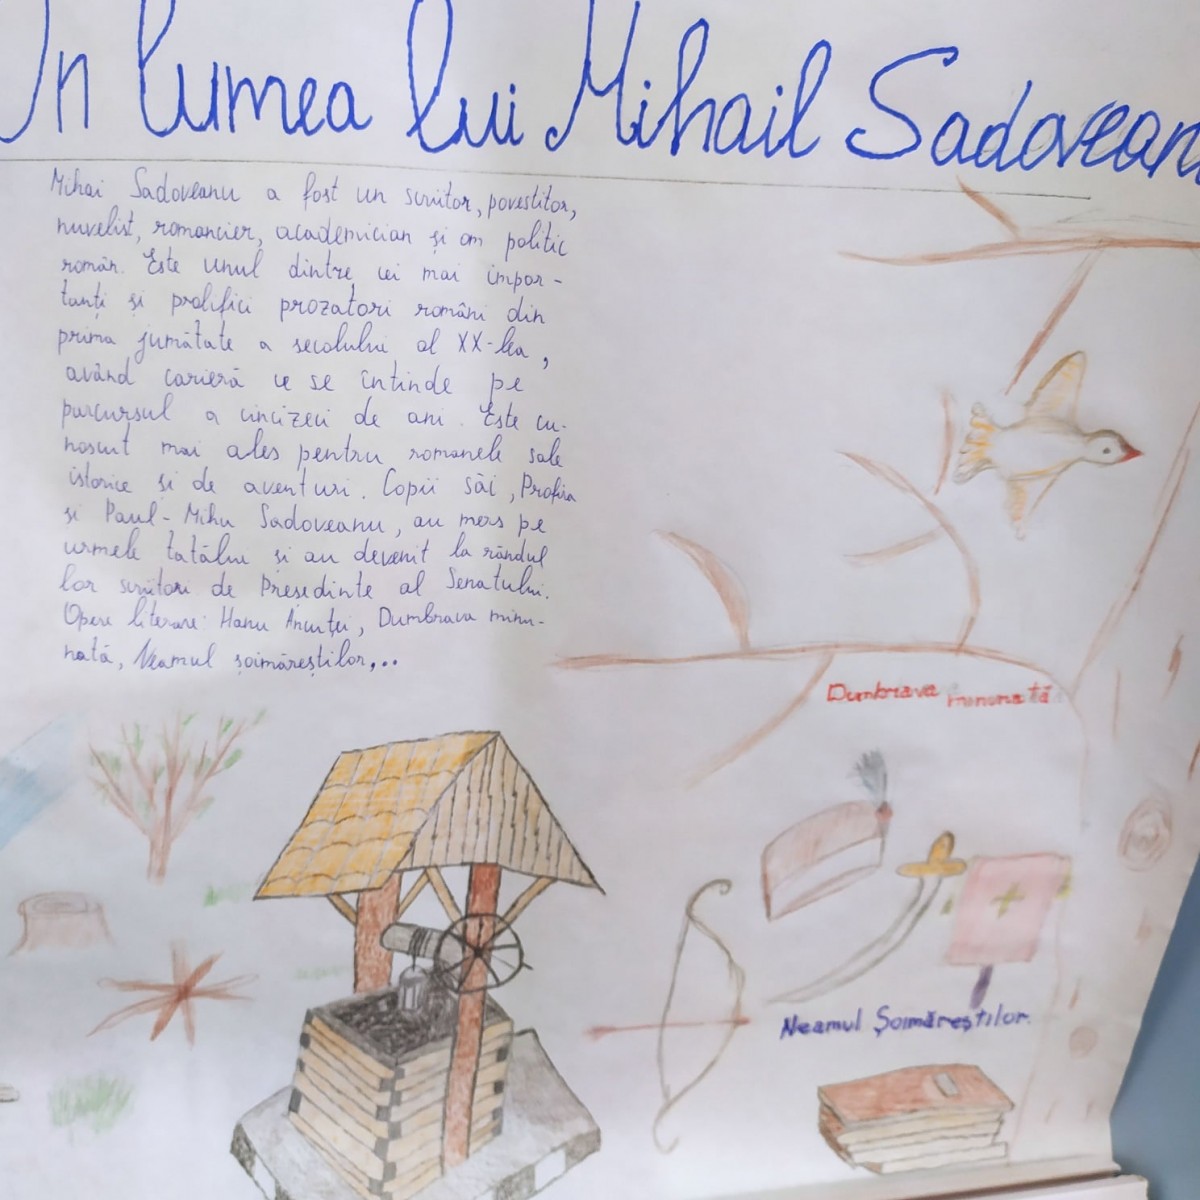 In lumea lui Mihail Sadovean
Mihai Sadoveanu a fost un scriitor, povestitor,
nuvelist, romancier, academician și om politic
român. Este unul dintre cei mai impor-
tanți și prolifici prozatori români din
prima jumătate a secolului al XX-lea,
având carieră ce se întinde pe
parcursul a cincizeci de ani. Este cu-
noscut mai ales pentru romanele sale
istorice și de aventuri. Copii săi, Profira
și Paul-Mihu Sadoveanu, au mers pe
urmele tatălui și au devenit la rândul
lor scriitori de Președinte al Senatului.
Opere literare: Hanu Ancuței, Dumbrava minu-
nată, Neamul șoimăreștilor,...
Dumbrava minunată
Neamul Șoimăreștilor.